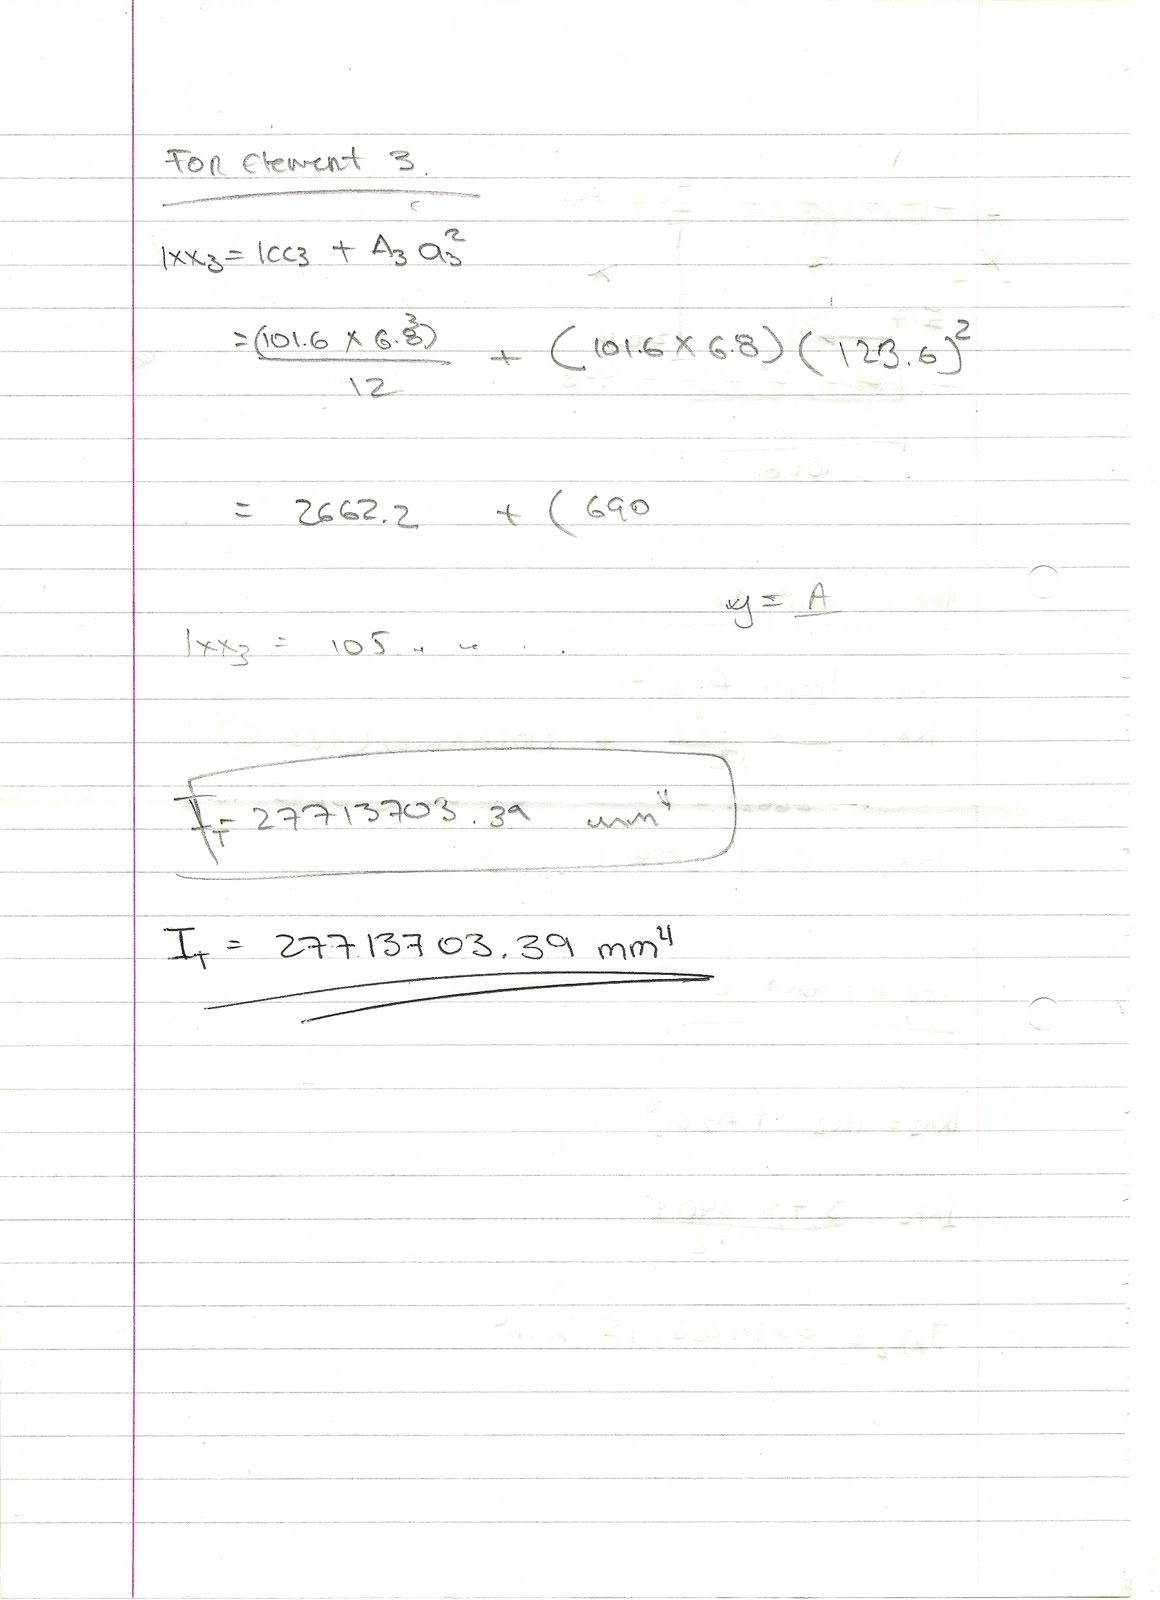 FOR Element 3.
Ixx3 = Icc3 + A3 a3²
= (101.6 × 6.8³)/12 + (101.6 × 6.8)(123.6)²
= 2662.2 + (690
y = A
Ixx3 = 105 . . . .
IT = 27713703.39 mm⁴
IT = 27713703.39 mm⁴